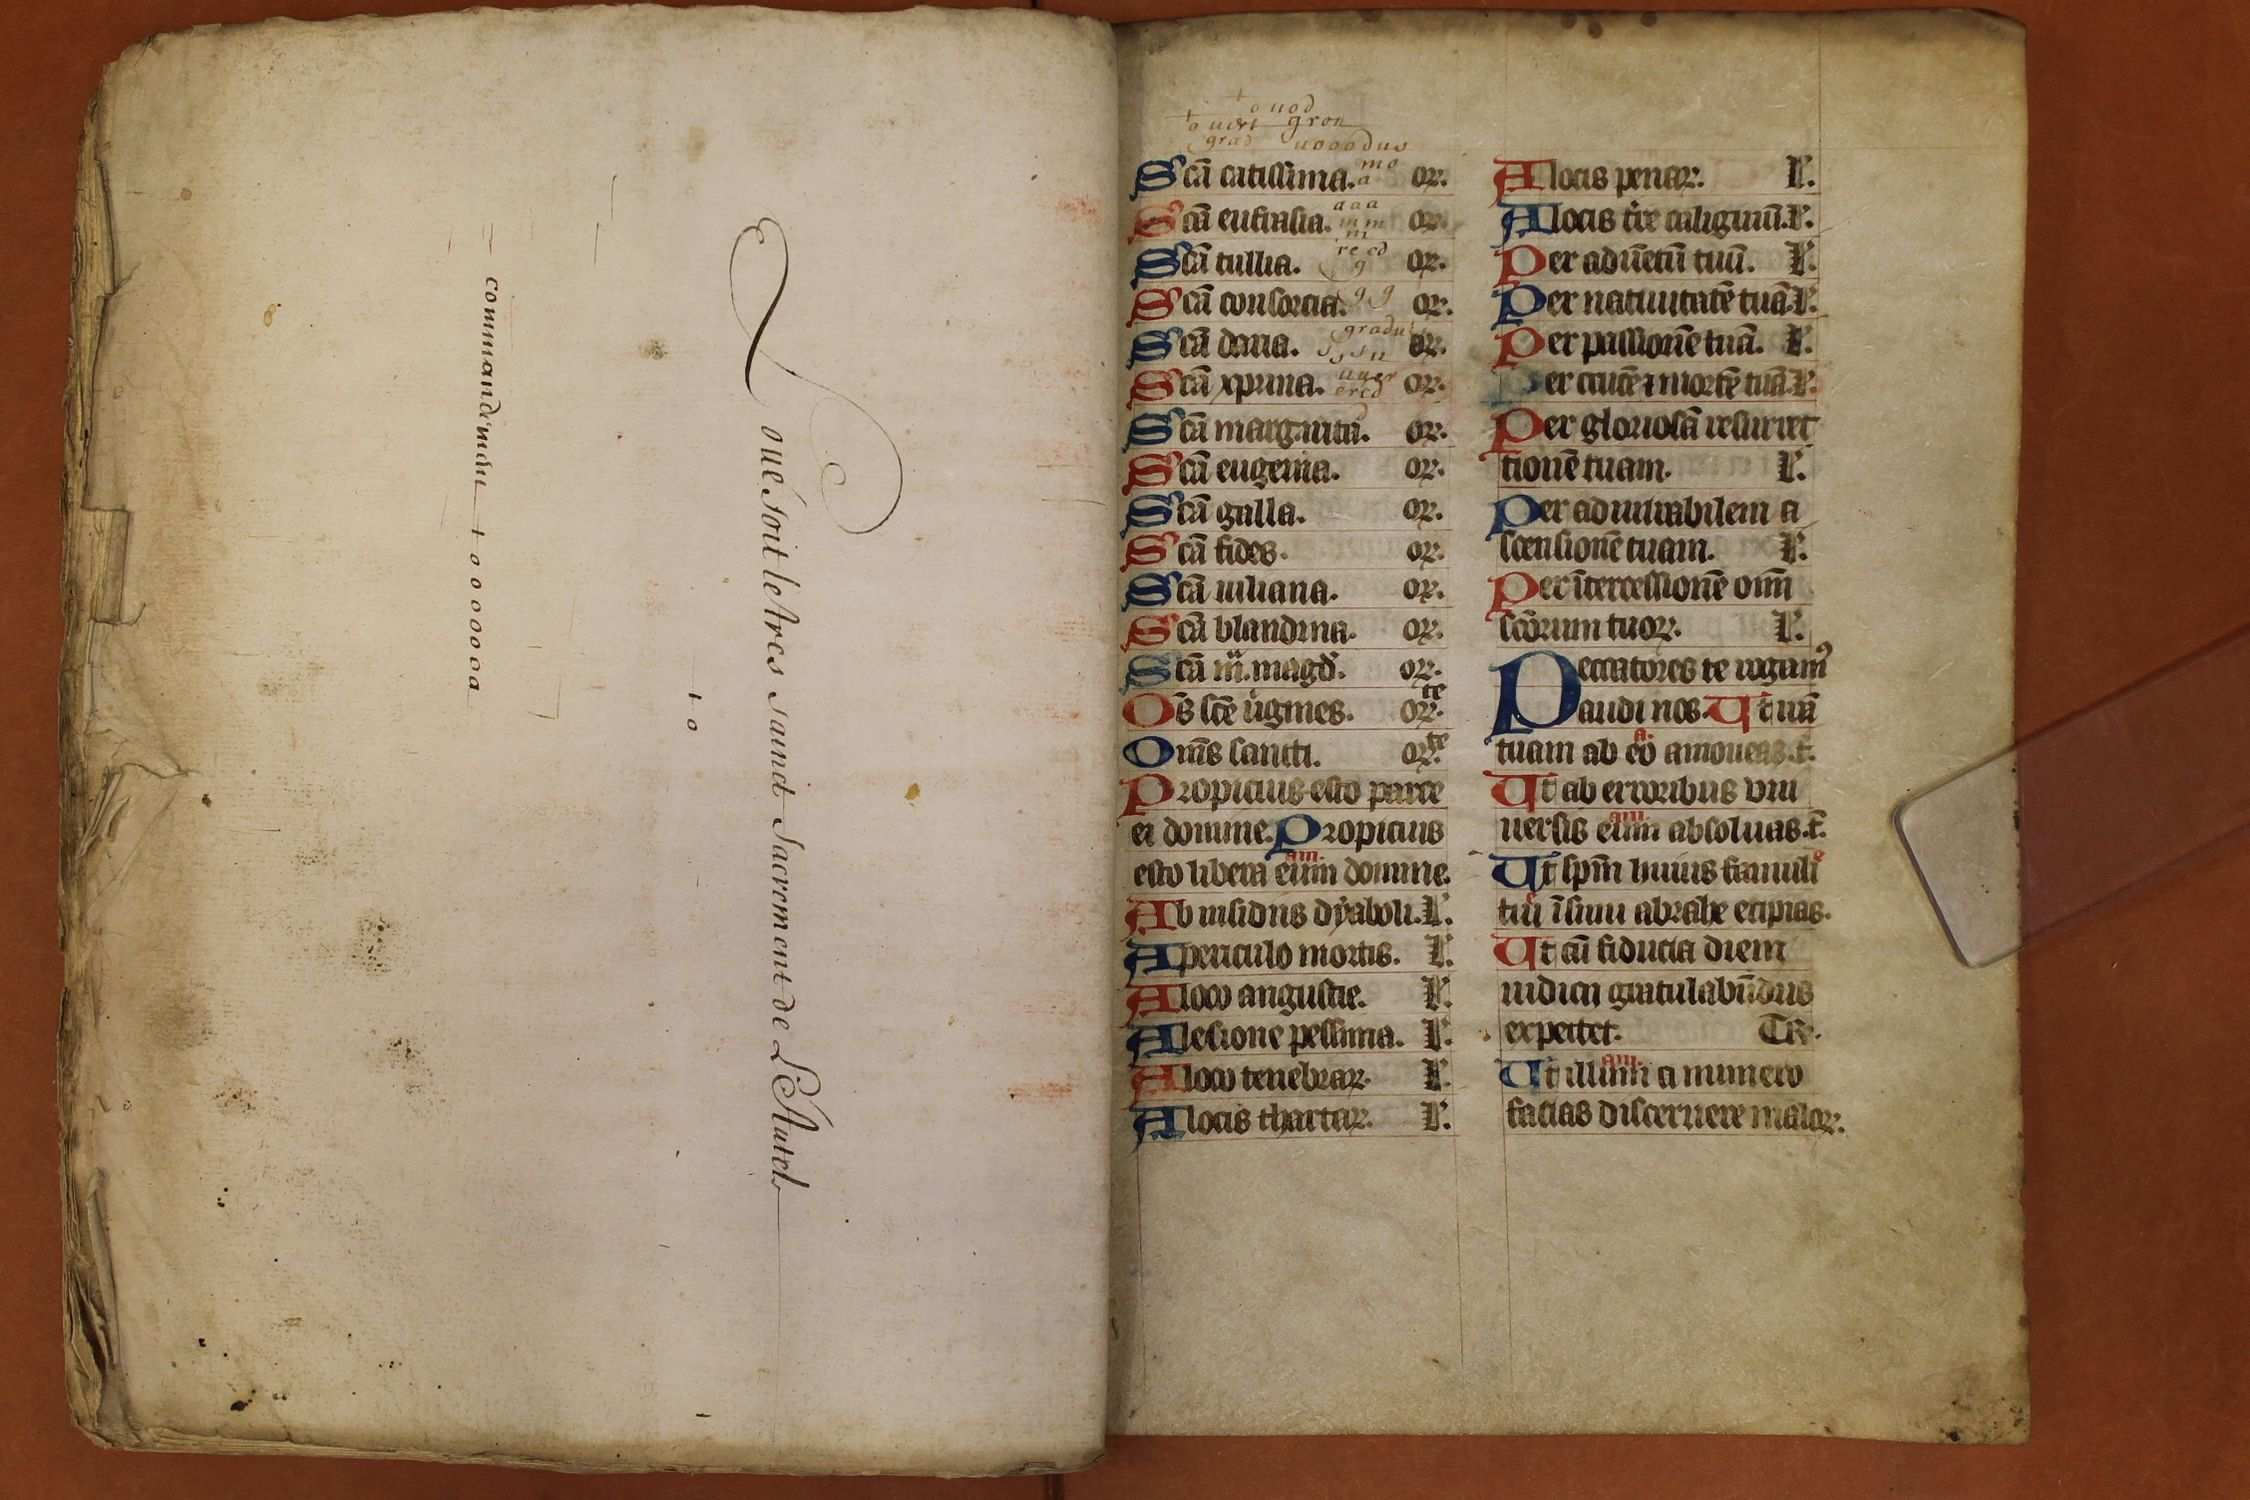 Loué soit le tres sainct Sacrement de L'Autel
to
commandemen tooooooaa
to uod
to uert gron
grad uooodus
Scā catissima. or̄.
mo
a
Scā eufrasia. or̄.
aaa
mm
m
Scā tullia. or̄.
re cd
g
Scā consorcia. or̄.
gg
Scā daria. or̄.
gradu
Scā xprina. or̄.
auer
ercd
Scā margarita. or̄.
Scā eugenia. or̄.
Scā galla. or̄.
Scā fides. or̄.
Scā iuliana. or̄.
Scā blandina. or̄.
Scā m̄. magd̄. or̄.
Om̄s scē v̄gines. or̄. te
Om̄s sancti. or̄. te
Propicius esto parce
ei domine. Propicius
esto libera eum am. domine.
Ab insidiis dyaboli. L.
A periculo mortis. L.
A loco angustie. L.
A lesione pessima. L.
A loco tenebrar̄. L.
A locis thartar̄. L.
A locis penar̄. L.
A locis t̄re caliginū. L.
Per aduētū tuū. L.
Per natiuitatē tuā. L.
Per passionē tuā. L.
Per crucē ⁊ mortē tuā. L.
Per gloriosā resurrec
tionē tuam. L.
Per admirabilem a
scensionē tuam. L.
Per ītercessionē om̄
scōrum tuor̄. L.
Peccatores te rogam⁹
audi nos. Ut iram
tuam ab eo a. amoueas. t̄.
Ut ab erroribus vni
uersis eum am. absoluas. t̄.
Ut sp̄m huius famuli e
tui ī sinu abrahe ecipias.
Ut cū fiducia diem
iudicij gratulabūdus
expectet. TR.
Ut illum am. a numero
facias discernere malor̄.